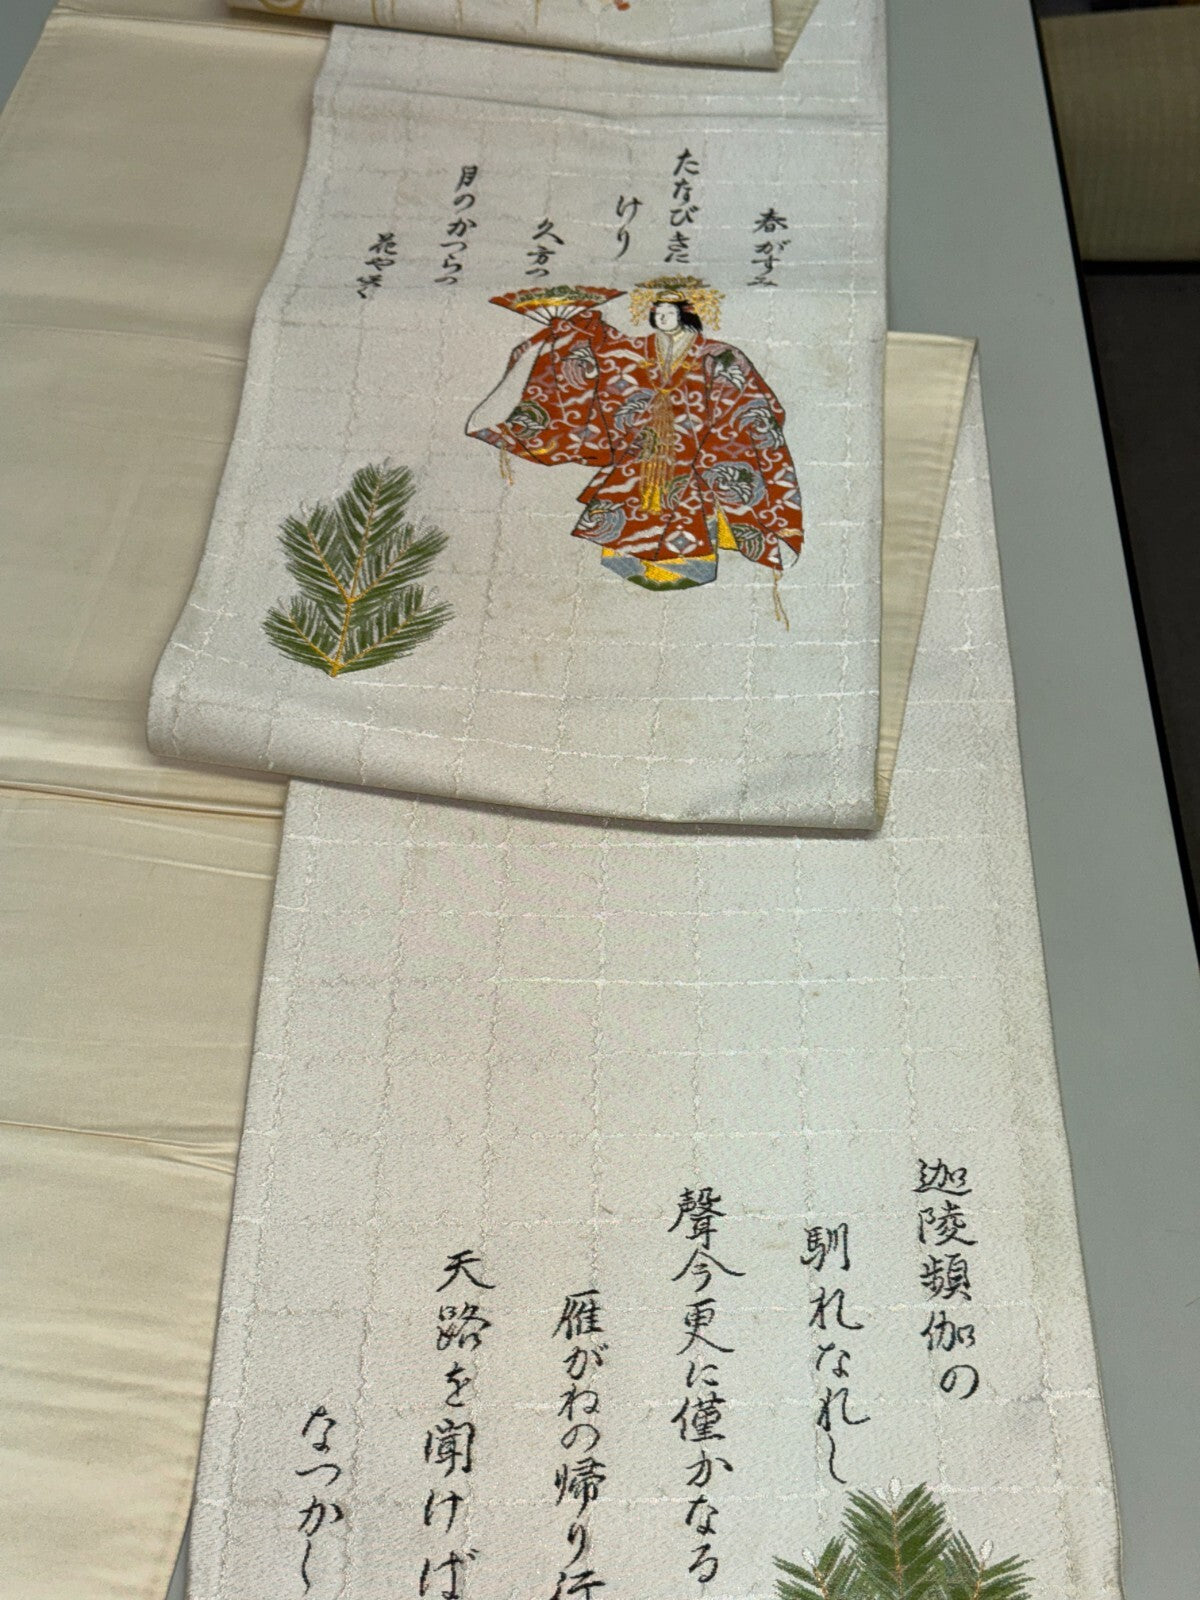 春がすみ
たなびきに
けり
久方の
月のかつらの
花や咲く
迦陵頻伽の
馴れなれし
聲今更に僅かなる
雁がねの帰り行
天路を聞けば
なつかし